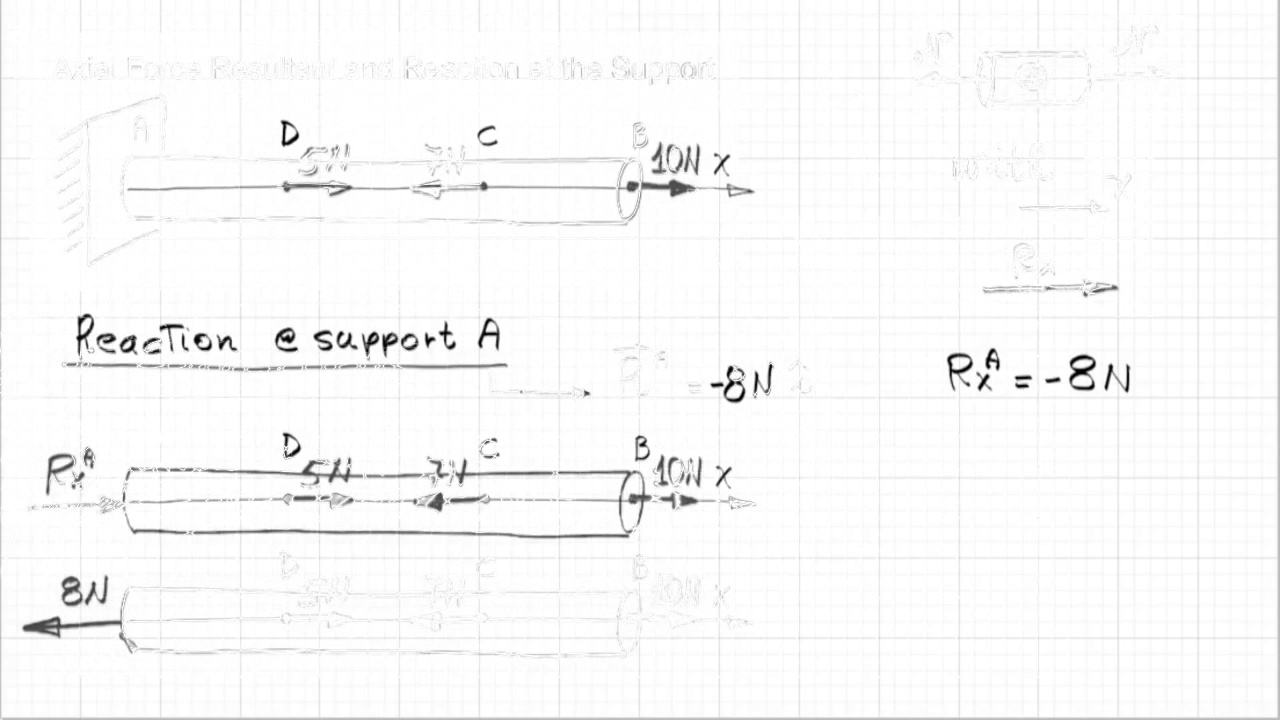 Axial Force Resultant and Reaction at the Support
N N
A D 5N 7N C B 10N x
with
x
Rx
Reaction @ support A
= -8N
RxA = -8N
RxA D 5N 7N C B 10N x
8N D 5N 7N C B 10N x